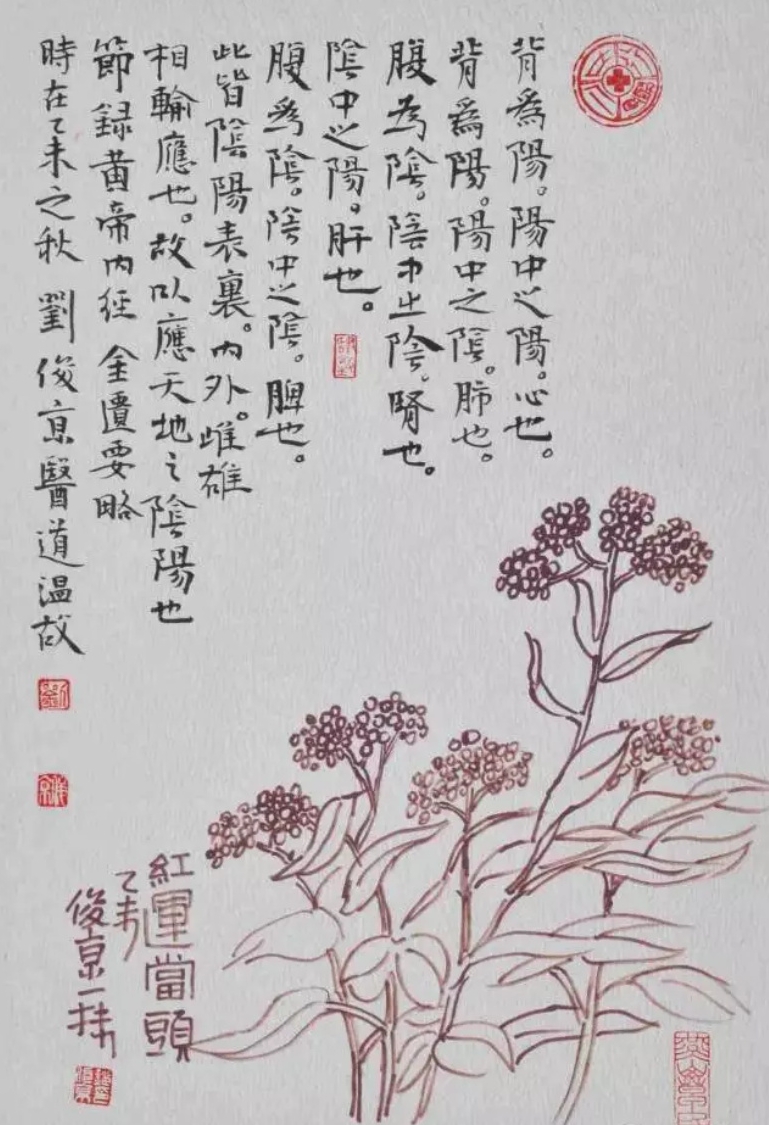 背爲陽。陽中之陽。心也。
背爲陽。陽中之陰。肺也。
腹為陰。陰中之陰。腎也。
陰中之陽。肝也。
腹爲陰。陰中之陰。脾也。
此皆陰陽表裏。内外。雌雄
相輸應也。故以應天地之陰陽也
節録黄帝内經 金匱要略
時在乙未之秋 劉俊京醫道温故
紅運當頭
乙未
俊京一抹